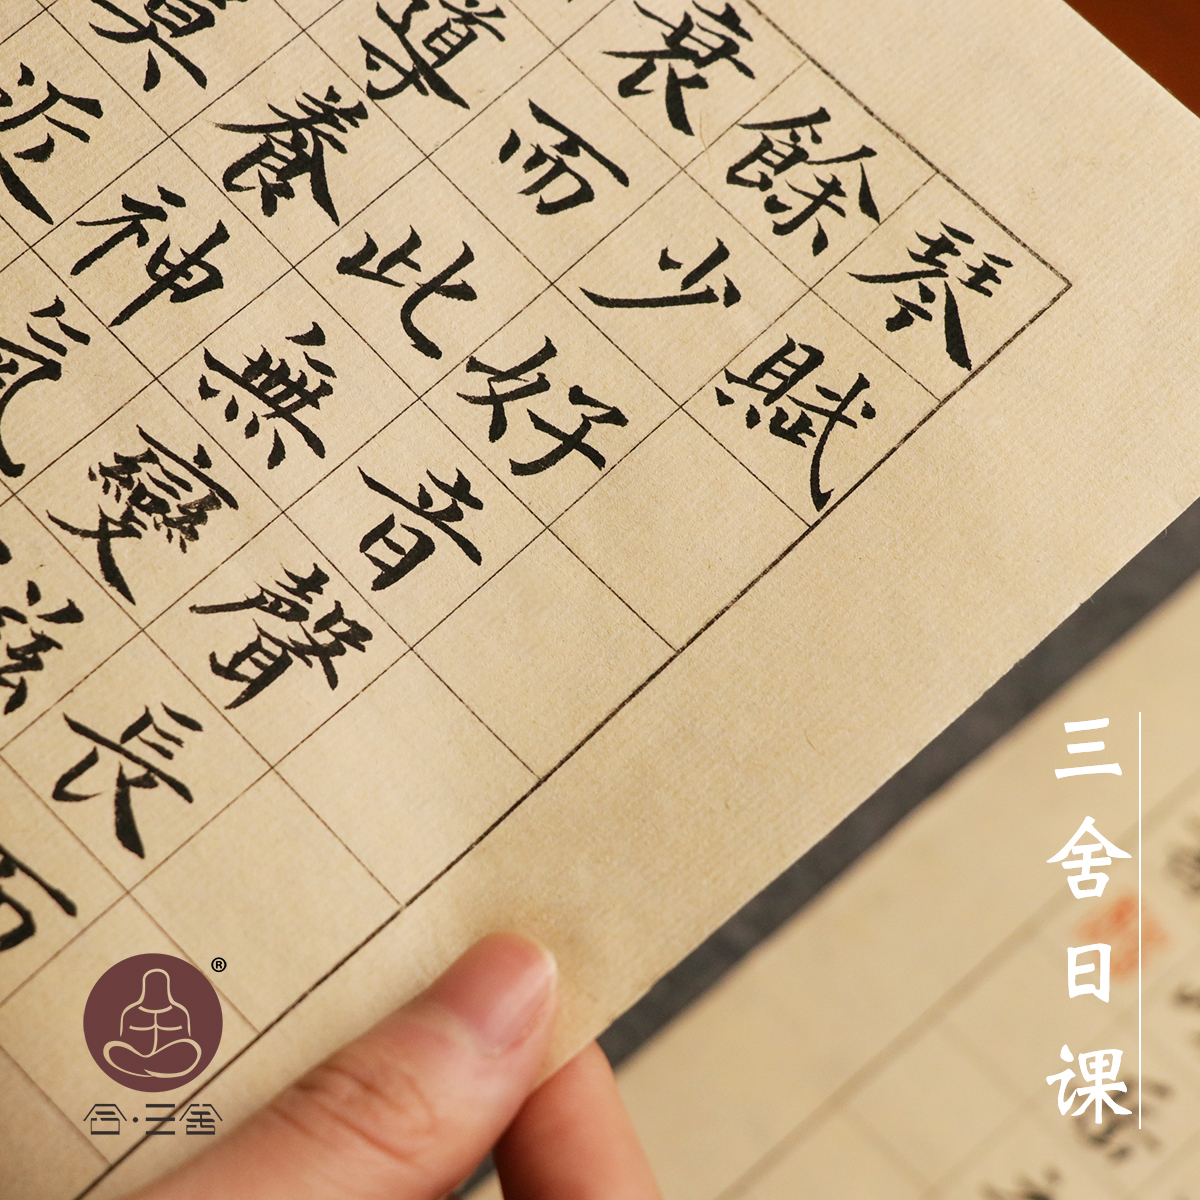 琴賦
餘少好音聲長而
衰而此無變滋
導養神氣
莫近
三舍日课
®
三舍